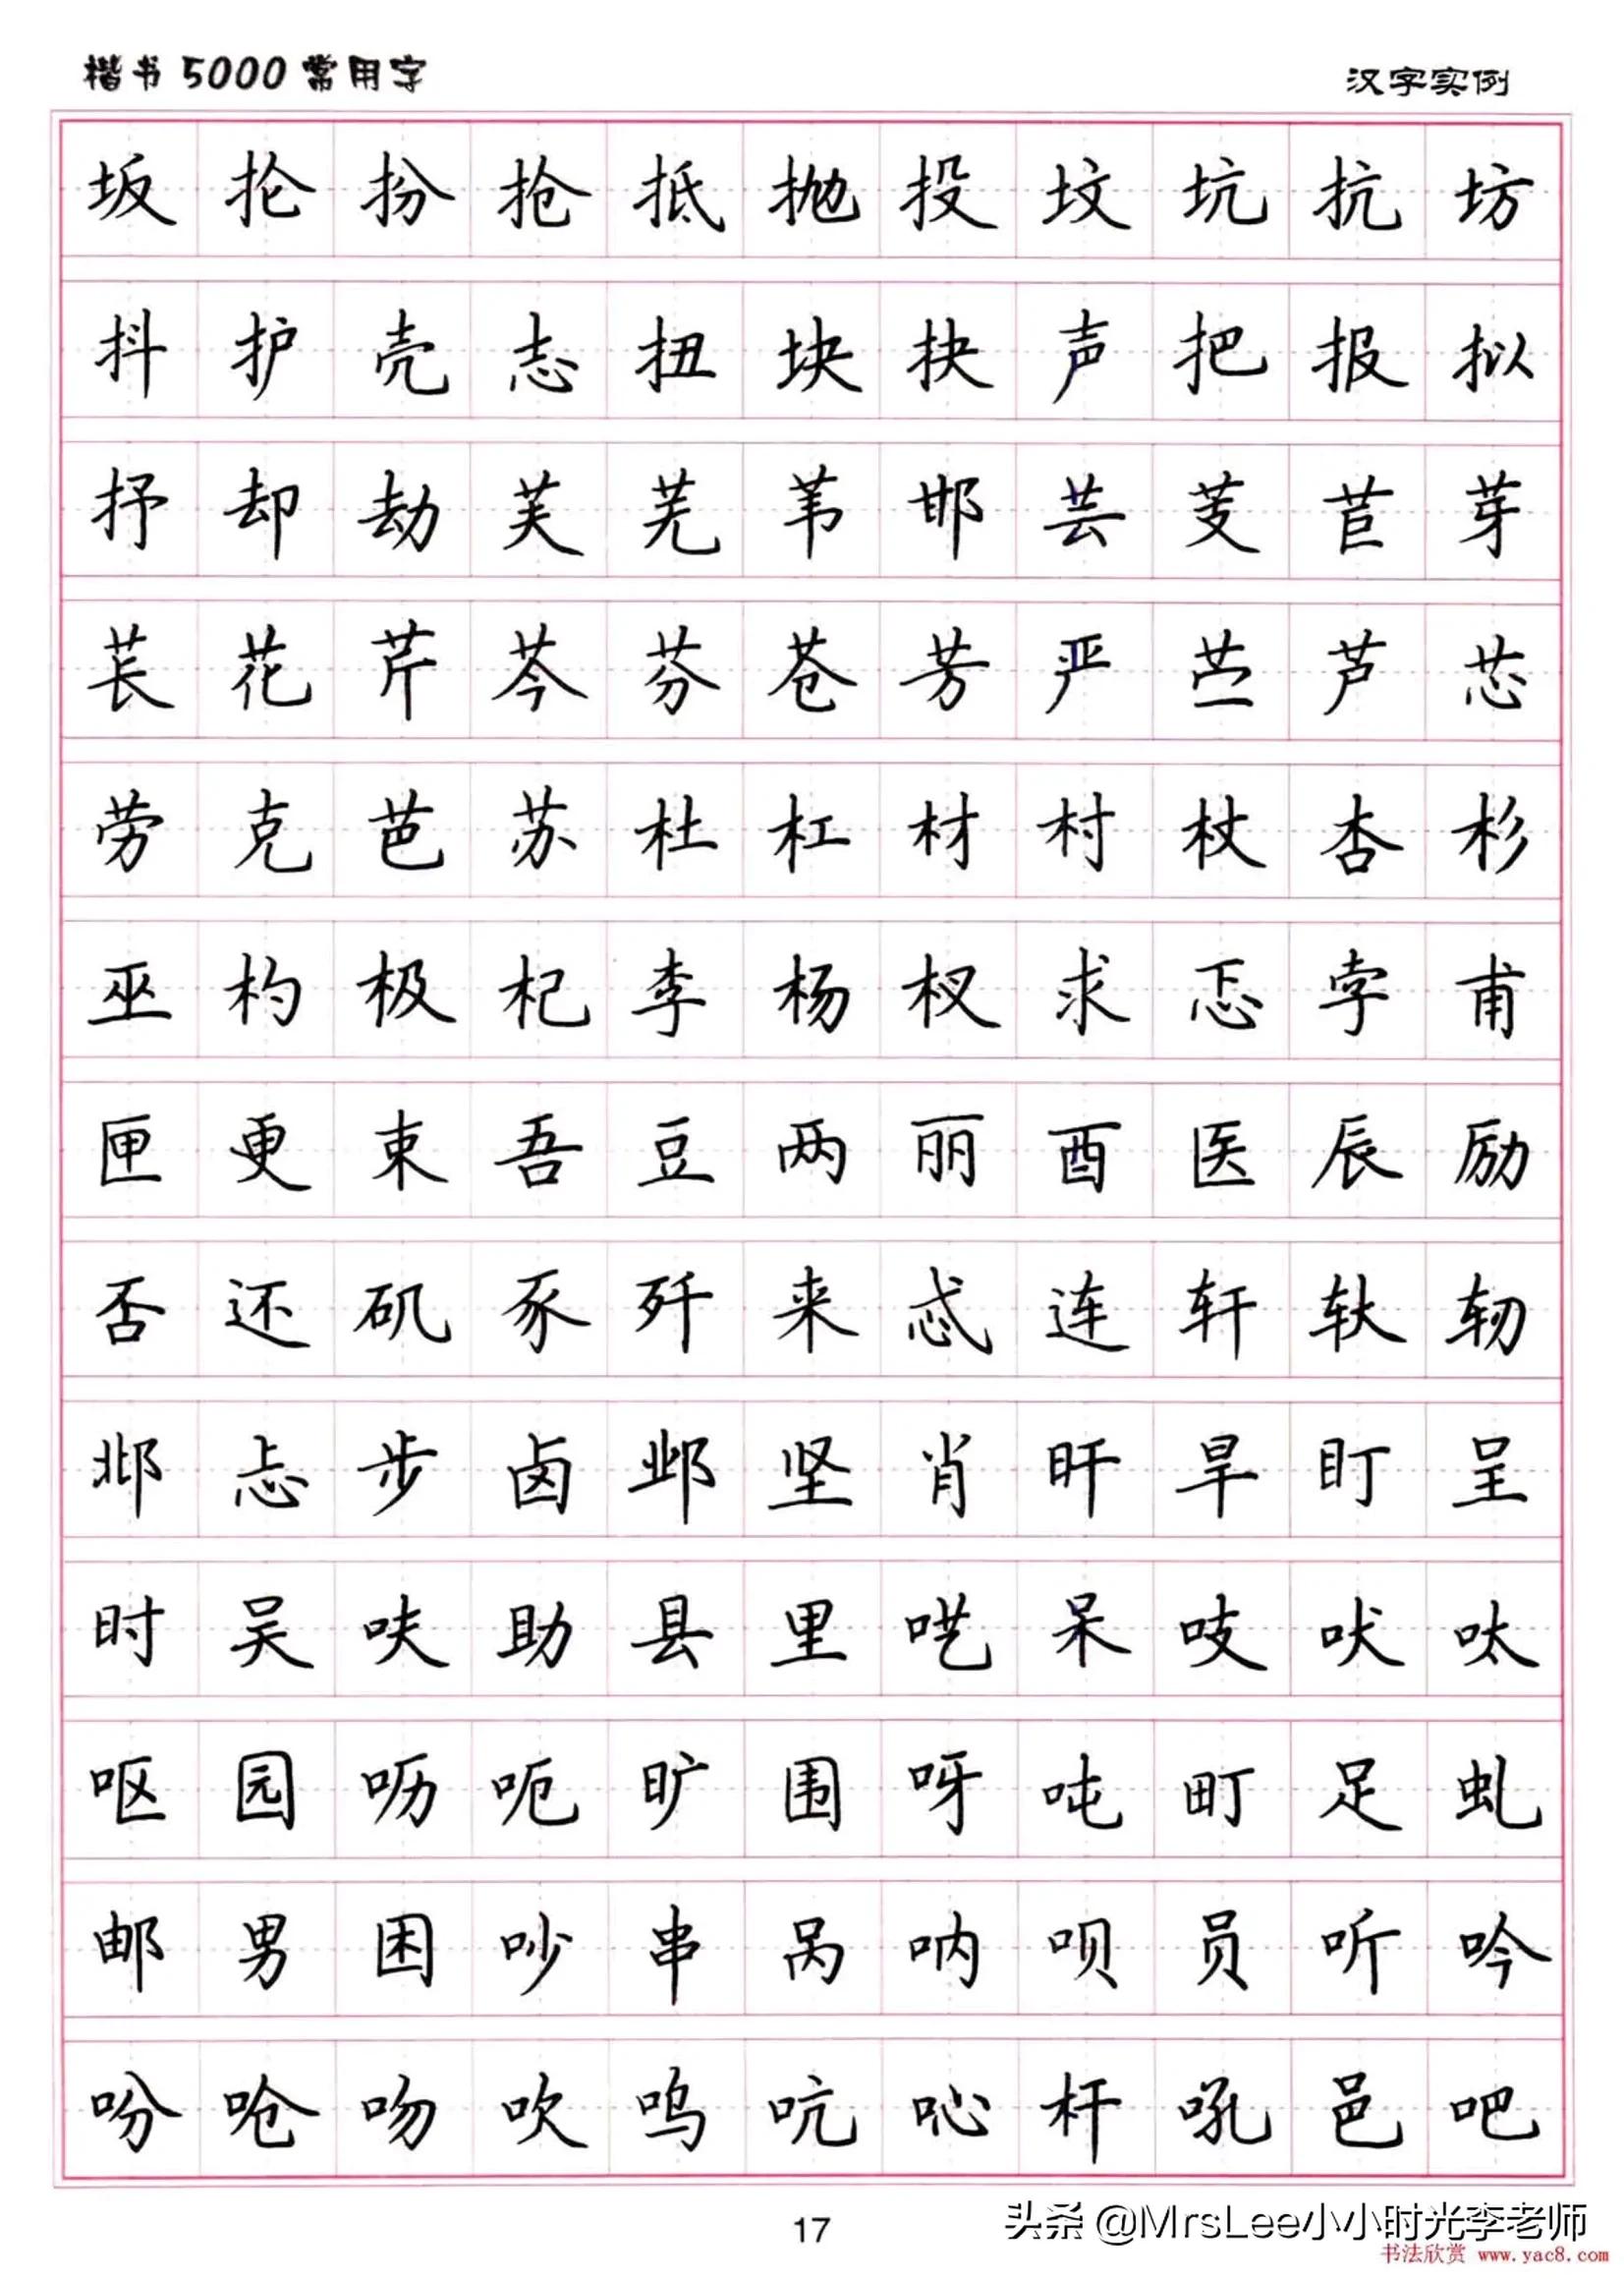 楷书5000常用字 汉字实例
坂 抡 扮 抢 抵 抛 投 坟 坑 抗 坊
抖 护 壳 志 扭 块 抉 声 把 报 拟
抒 却 劫 芙 芜 苇 邯 芸 芰 苣 芽
苌 花 芹 芩 芬 苍 芳 严 苎 芦 芯
劳 克 芭 苏 杜 杠 材 村 杖 杏 杉
巫 杓 极 杞 李 杨 杈 求 忑 孛 甫
匣 更 束 吾 豆 两 丽 酉 医 辰 励
否 还 矶 豕 歼 来 忒 连 轩 轪 轫
邶 忐 步 卤 邺 坚 肖 旰 旱 盯 呈
时 吴 呋 助 县 里 呓 呆 吱 吠 呔
呕 园 呖 呃 旷 围 呀 吨 町 足 虬
邮 男 困 吵 串 呙 呐 呗 员 听 吟
吩 呛 吻 吹 呜 吭 吣 杆 吼 邑 吧
17
头条 @MrsLee小小时光李老师
书法欣赏 www.yac8.com